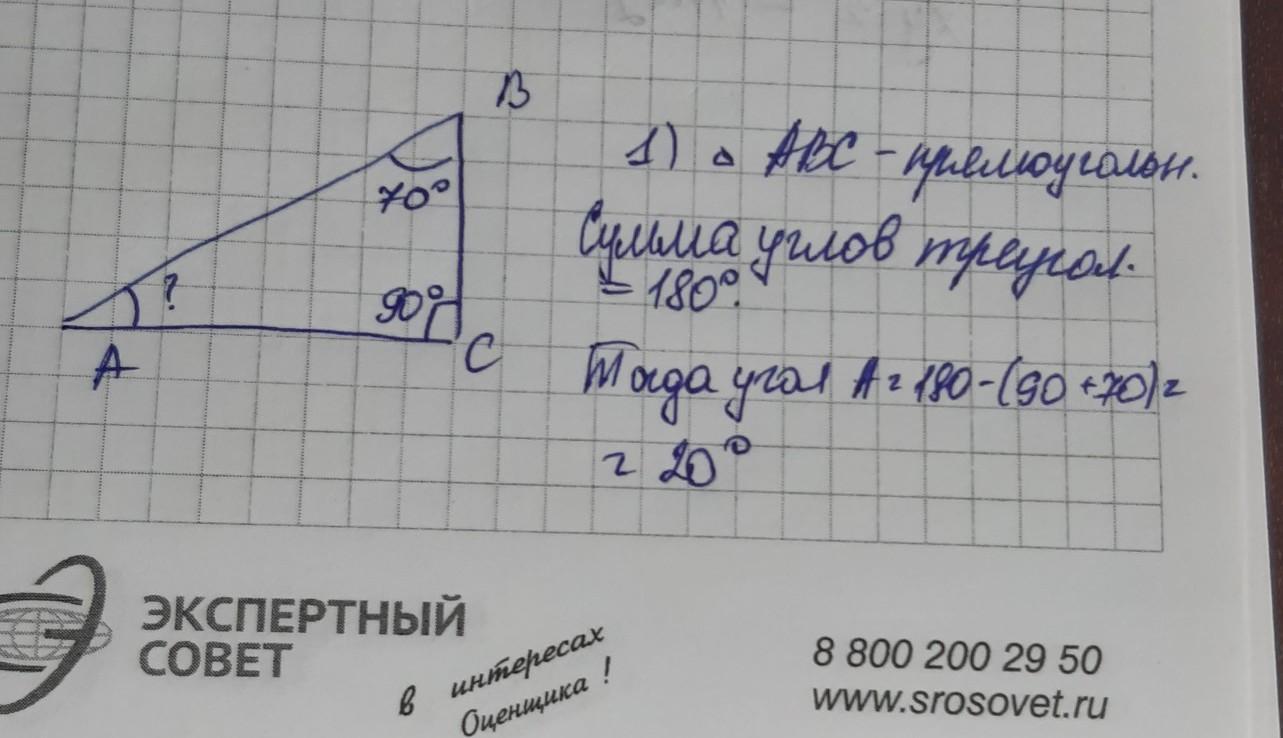 B
70°
?
90°
A
C
1) △ ABC - прямоугольн.
Сумма углов треугол.
= 180°.
Тогда угол A = 180 - (90 + 70) =
= 20°
ЭКСПЕРТНЫЙ
СОВЕТ
в интересах
Оценщика !
8 800 200 29 50
www.srosovet.ru